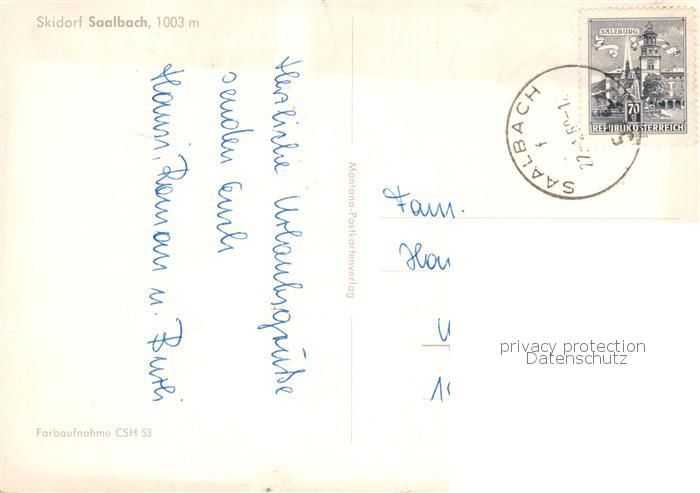 Skidorf Saalbach, 1003 m
Herzliche Urlaubsgrüße
senden Euch
Hansi, Roman u. Burli
Farbaufnahme CSH 53
Montana-Postkartenverlag
SALZBURG
70
REPUBLIK ÖSTERREICH
SAALBACH
1
Fam.
privacy protection
Datenschutz